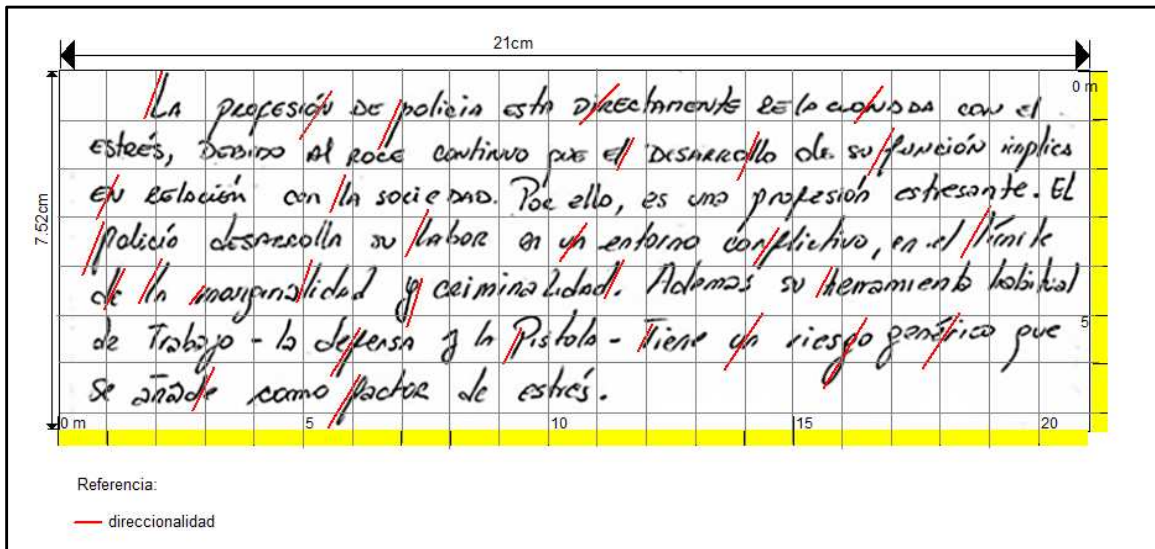 21cm
0 m
LA PROFESIÓN DE policia esta DIRECTAMENTE RELACIONADA con el
ESTRÉS, DEBIDO Al ROCE continuo que el DESARROllo de su función implica
EN RELACIÓN con la sociedad. Por ello, es una profesión estresante. El
policía desarrolla su labor en un entorno conflictivo, en el límite
de la marginalidad y criminalidad. Ademas su herramienta habitual
de Trabajo - la defensa y la Pistola - Tiene un riesgo genérico que
se añade como factor de estrés.
7.52cm
5
0 m 5 10 15 20
Referencia:
direccionalidad